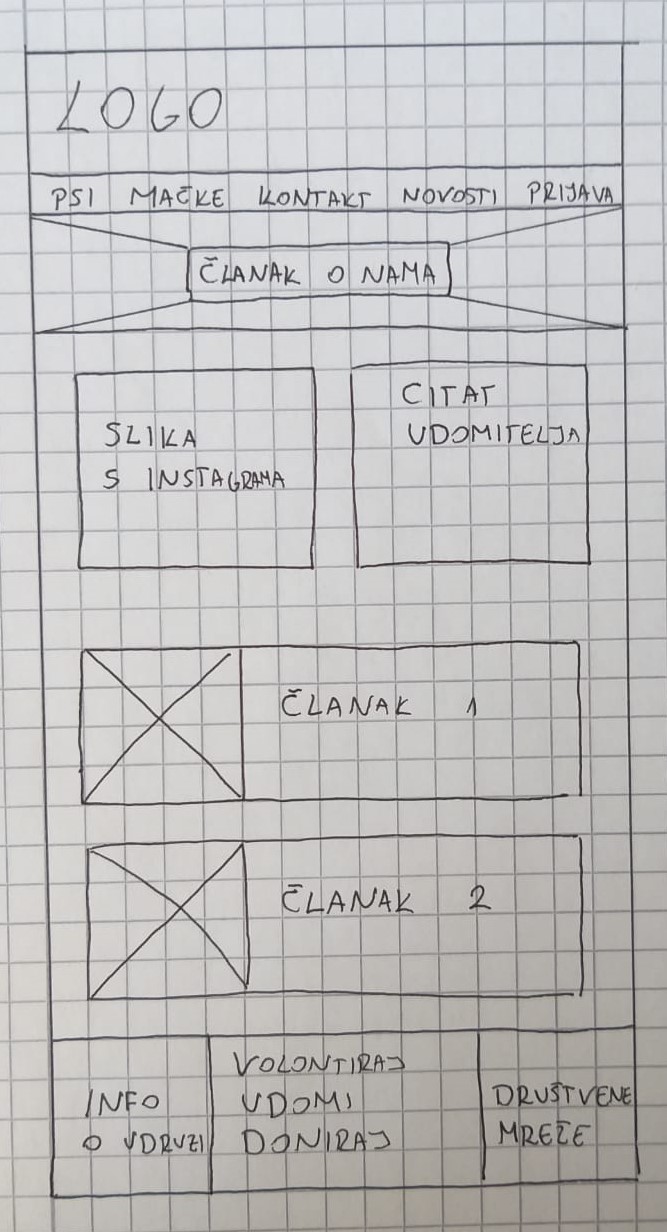 LOGO
PSI MAČKE KONTAKT NOVOSTI PRIJAVA
ČLANAK O NAMA
SLIKA
S INSTAGRAMA
CITAT
UDOMITELJA
ČLANAK 1
ČLANAK 2
INFO
O UDRUZI
VOLONTIRAJ
UDOMI
DONIRAJ
DRUŠTVENE
MREŽE